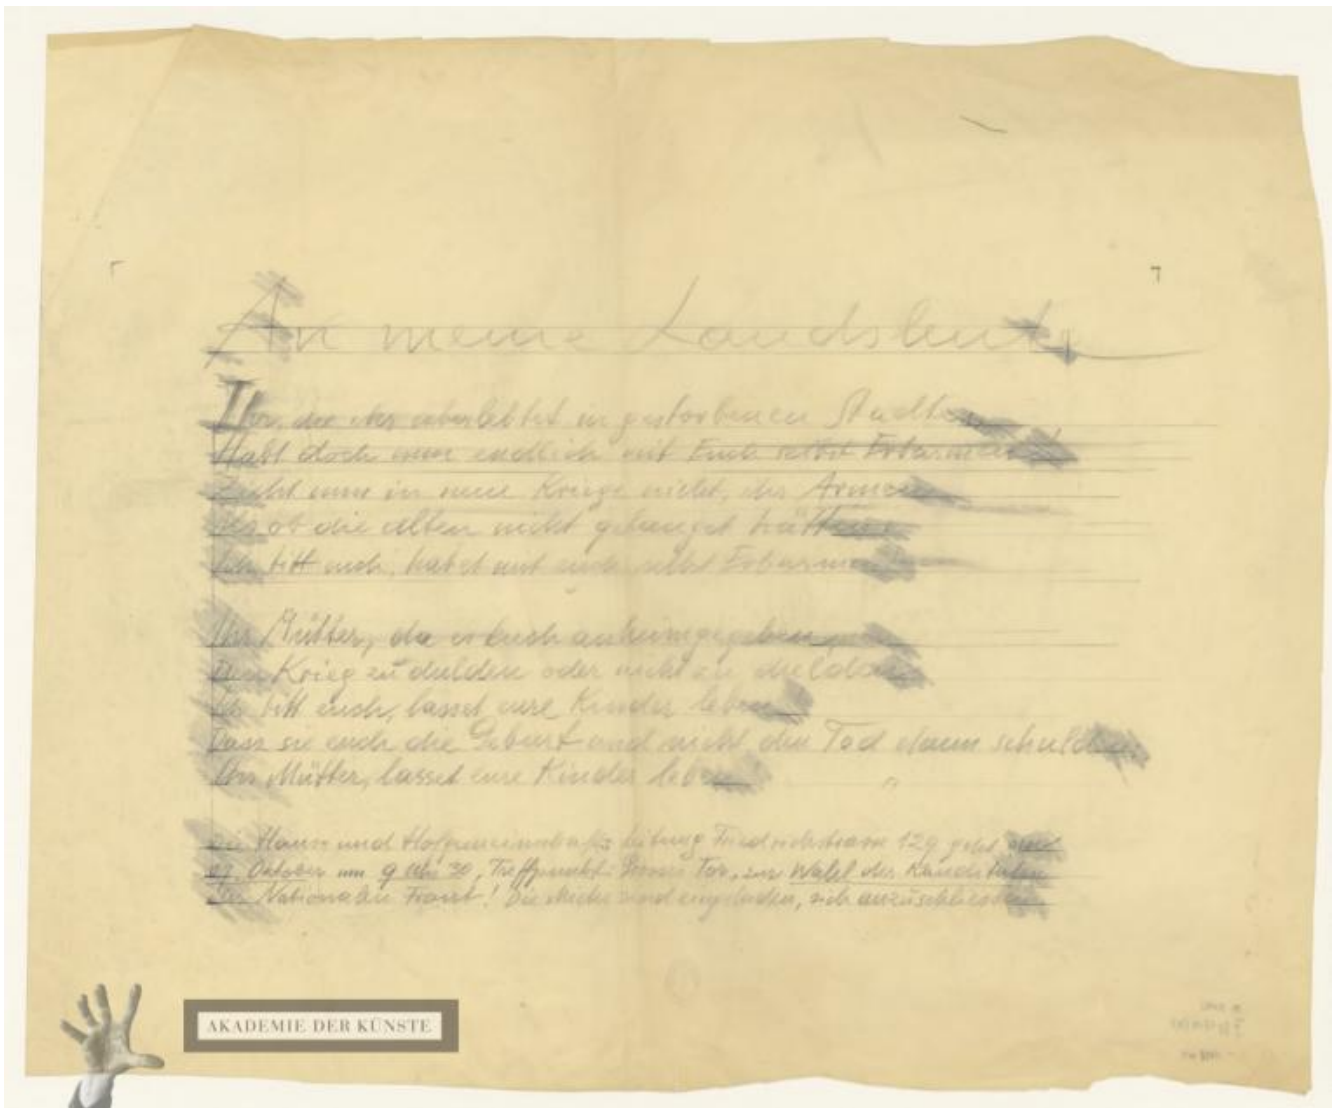 An meine Landsleute
Ihr, die ihr überlebtet in gestorbenen Städten
Habt doch nun endlich mit Euch selbst Erbarmen
Zieht nun in neue Kriege nicht, ihr Armen
Als ob die alten nicht gelanget hätten
Ich bitt euch, habet mit euch selbst Erbarmen
Ihr Mütter, da es Euch anheimgegeben
Den Krieg zu dulden oder nicht zu dulden
Ich bitt euch, lasset eure Kinder leben
Dass sie euch die Geburt und nicht den Tod dann schulden
Ihr Mütter, lasset eure Kinder leben
Die Haus und Hofgemeinschafts Leitung Friedrichstrasse 129 geht
October um 9 Uhr 30, Treffpunkt: Tor, zur Wahl der Kandidaten
der Nationalen Front! Die Mieter sind eingeladen, sich anzuschliessen
AKADEMIE DER KÜNSTE